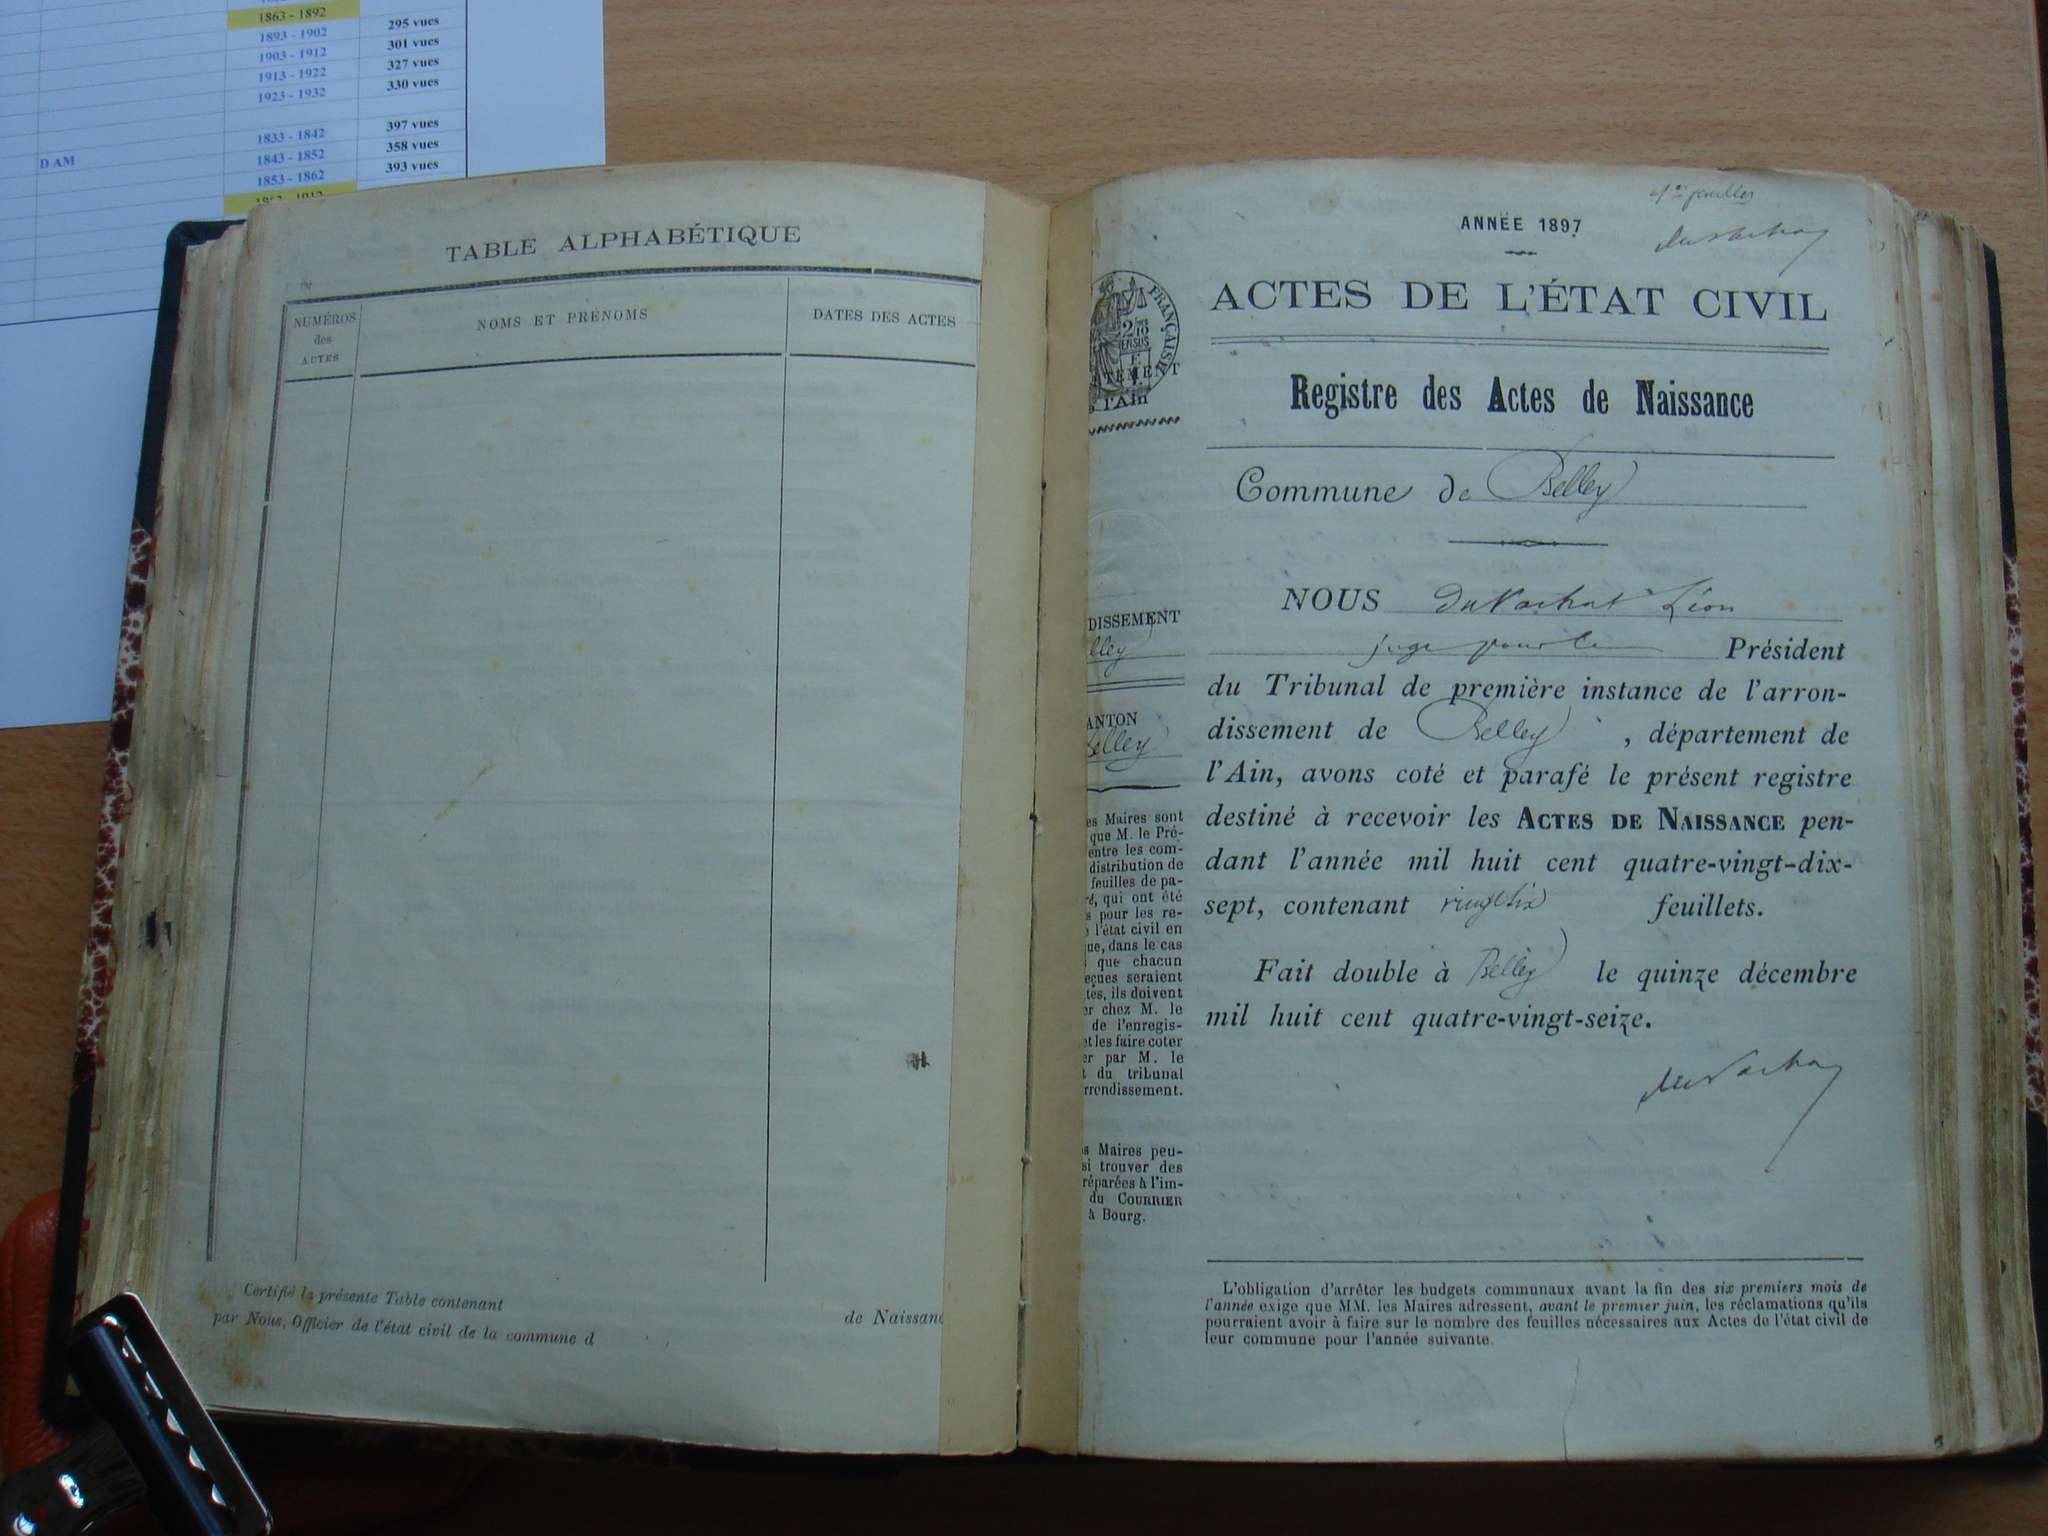 1863 - 1892
1893 - 1902 295 vues
1903 - 1912 301 vues
1913 - 1922 327 vues
1923 - 1932 330 vues
1833 - 1842 397 vues
D AM 1843 - 1852 358 vues
1853 - 1862 393 vues
TABLE ALPHABÉTIQUE
NUMÉROS
des
ACTES
NOMS ET PRÉNOMS
DATES DES ACTES
Certifié la présente Table contenant
de Naissanc
par Nous, Officier de l'état civil de la commune d
1er feuillet
duVachat
ANNÉE 1897
ACTES DE L'ÉTAT CIVIL
Registre des Actes de Naissance
Commune de Belley
NOUS duVachat Léon
juge pour le Président
du Tribunal de première instance de l'arron-
dissement de Belley , département de
l'Ain, avons coté et parafé le présent registre
destiné à recevoir les ACTES DE NAISSANCE pen-
dant l'année mil huit cent quatre-vingt-dix-
sept, contenant vingt six feuillets.
Fait double à Belley le quinze décembre
mil huit cent quatre-vingt-seize.
duVachat
L'obligation d'arrêter les budgets communaux avant la fin des six premiers mois de
l'année exige que MM. les Maires adressent, avant le premier juin, les réclamations qu'ils
pourraient avoir à faire sur le nombre des feuilles nécessaires aux Actes de l'état civil de
leur commune pour l'année suivante.
FRANÇAISE
2/10
EN SUS
l'Ain
DISSEMENT
lley
ANTON
Belley
es Maires sont
que M. le Pré-
entre les com-
distribution de
feuilles de pa-
é, qui ont été
s pour les re-
l'état civil en
ue, dans le cas
que chacun
eçues seraient
tes, ils doivent
er chez M. le
de l'enregis-
et les faire coter
er par M. le
t du tribunal
rrondissement.
s Maires peu-
si trouver des
réparées à l'im-
du COURRIER
à Bourg.